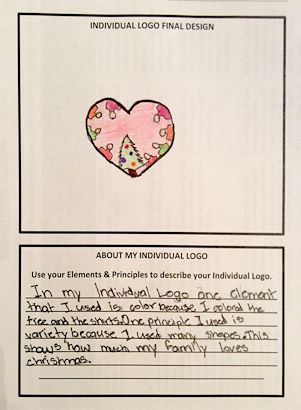 INDIVIDUAL LOGO FINAL DESIGN
ABOUT MY INDIVIDUAL LOGO
Use your Elements & Principles to describe your Individual Logo.
In my Individual Logo one element
that I used is color because I colored the
tree and the shirts. One principle I used is
variety because I used many shapes. This
shows how much my family loves
christmas.